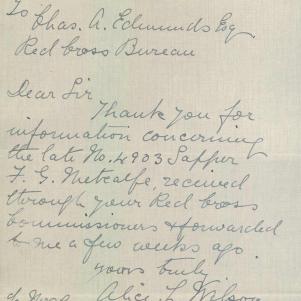 To
Chas. A. Edmunds Esq
Red Cross Bureau
Dear Sir
Thank you for
information concerning
the late No. 4903 Sapper
F. G. Metcalfe, received
through your Red Cross
Commissioners & forwarded
to me a few weeks ago.
yours truly
Alice L Wilson